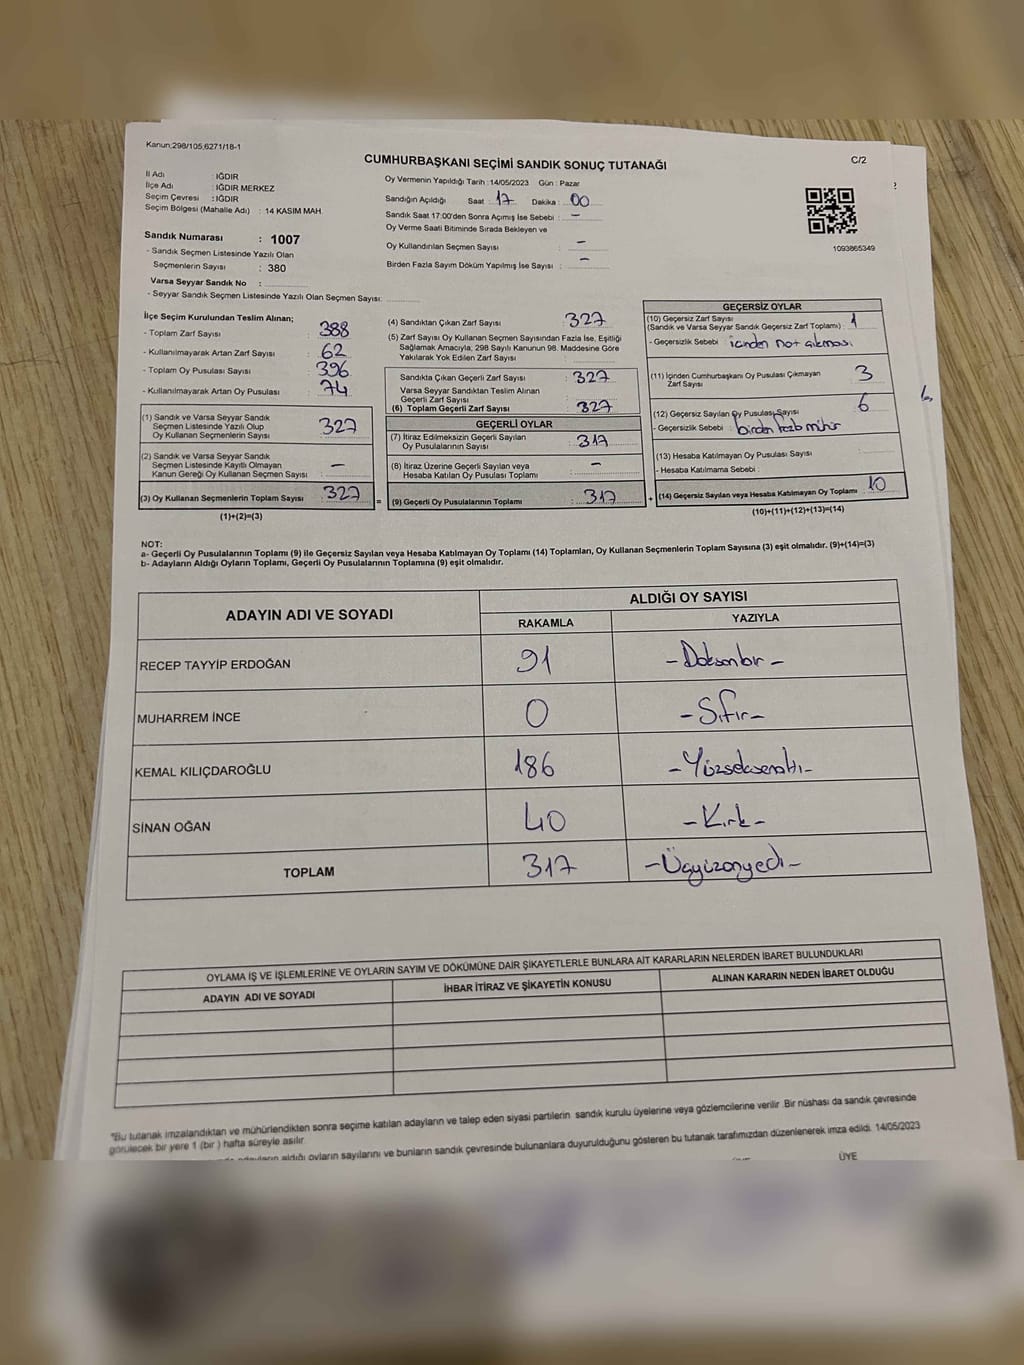 Kanun;298/105,6271/18-1
CUMHURBAŞKANI SEÇİMİ SANDIK SONUÇ TUTANAĞI
C/2
İl Adı : IĞDIR
İlçe Adı : IĞDIR MERKEZ
Seçim Çevresi : IĞDIR
Seçim Bölgesi (Mahalle Adı) : 14 KASIM MAH.
Sandık Numarası : 1007
- Sandık Seçmen Listesinde Yazılı Olan
Seçmenlerin Sayısı : 380
Varsa Seyyar Sandık No :
- Seyyar Sandık Seçmen Listesinde Yazılı Olan Seçmen Sayısı:
Oy Vermenin Yapıldığı Tarih : 14/05/2023 Gün : Pazar
Sandığın Açıldığı Saat : 17 Dakika : 00
Sandık Saat 17:00'den Sonra Açımış İse Sebebi : -
Oy Verme Saati Bitiminde Sırada Bekleyen ve
Oy Kullandırılan Seçmen Sayısı : -
Birden Fazla Sayım Döküm Yapılmış İse Sayısı : -
1093865349
İlçe Seçim Kurulundan Teslim Alınan;
- Toplam Zarf Sayısı : 388
- Kullanılmayarak Artan Zarf Sayısı : 62
- Toplam Oy Pusulası Sayısı : 396
- Kullanılmayarak Artan Oy Pusulası : 74
(1) Sandık ve Varsa Seyyar Sandık
Seçmen Listesinde Yazılı Olup
Oy Kullanan Seçmenlerin Sayısı : 327
(2) Sandık ve Varsa Seyyar Sandık
Seçmen Listesinde Kayıtlı Olmayan
Kanun Gereği Oy Kullanan Seçmen Sayısı : -
(3) Oy Kullanan Seçmenlerin Toplam Sayısı : 327
(1)+(2)=(3)
(4) Sandıktan Çıkan Zarf Sayısı : 327
(5) Zarf Sayısı Oy Kullanan Seçmen Sayısından Fazla İse, Eşitliği
Sağlamak Amacıyla; 298 Sayılı Kanunun 98. Maddesine Göre
Yakılarak Yok Edilen Zarf Sayısı :
Sandıkta Çıkan Geçerli Zarf Sayısı : 327
Varsa Seyyar Sandıktan Teslim Alınan
Geçerli Zarf Sayısı :
(6) Toplam Geçerli Zarf Sayısı : 327
GEÇERLİ OYLAR
(7) İtiraz Edilmeksizin Geçerli Sayılan
Oy Pusulalarının Sayısı : 317
(8) İtiraz Üzerine Geçerli Sayılan veya
Hesaba Katılan Oy Pusulası Toplamı : -
(9) Geçerli Oy Pusulalarının Toplamı : 317
GEÇERSİZ OYLAR
(10) Geçersiz Zarf Sayısı
(Sandık ve Varsa Seyyar Sandık Geçersiz Zarf Toplamı) : 1
- Geçersizlik Sebebi : içinden not çıkması
(11) İçinden Cumhurbaşkanı Oy Pusulası Çıkmayan
Zarf Sayısı : 3
(12) Geçersiz Sayılan Oy Pusulası Sayısı : 6
- Geçersizlik Sebebi : birden fazla mühür
(13) Hesaba Katılmayan Oy Pusulası Sayısı :
- Hesaba Katılmama Sebebi :
(14) Geçersiz Sayılan veya Hesaba Katılmayan Oy Toplamı : 10
(10)+(11)+(12)+(13)=(14)
NOT:
a- Geçerli Oy Pusulalarının Toplamı (9) ile Geçersiz Sayılan veya Hesaba Katılmayan Oy Toplamı (14) Toplamları, Oy Kullanan Seçmenlerin Toplam Sayısına (3) eşit olmalıdır. (9)+(14)=(3)
b- Adayların Aldığı Oyların Toplamı, Geçerli Oy Pusulalarının Toplamına (9) eşit olmalıdır.
ADAYIN ADI VE SOYADI
ALDIĞI OY SAYISI
RAKAMLA YAZIYLA
RECEP TAYYİP ERDOĞAN 91 -Doksanbir-
MUHARREM İNCE 0 -Sıfır-
KEMAL KILIÇDAROĞLU 186 -Yüzseksenaltı-
SİNAN OĞAN 40 -Kırk-
TOPLAM 317 -Üçyüzonyedi-
OYLAMA İŞ VE İŞLEMLERİNE VE OYLARIN SAYIM VE DÖKÜMÜNE DAİR ŞİKAYETLERLE BUNLARA AİT KARARLARIN NELERDEN İBARET BULUNDUKLARI
ADAYIN ADI VE SOYADI İHBAR İTİRAZ VE ŞİKAYETİN KONUSU ALINAN KARARIN NEDEN İBARET OLDUĞU
*Bu tutanak imzalandıktan ve mühürlendikten sonra seçime katılan adayların ve talep eden siyasi partilerin sandık kurulu üyelerine veya gözlemcilerine verilir. Bir nüshası da sandık çevresinde
görülecek bir yere 1 (bir ) hafta süreyle asılır.
adayların aldığı oyların sayılarını ve bunların sandık çevresinde bulunanlara duyurulduğunu gösteren bu tutanak tarafımızdan düzenlenerek imza edildi. 14/05/2023
ÜYE